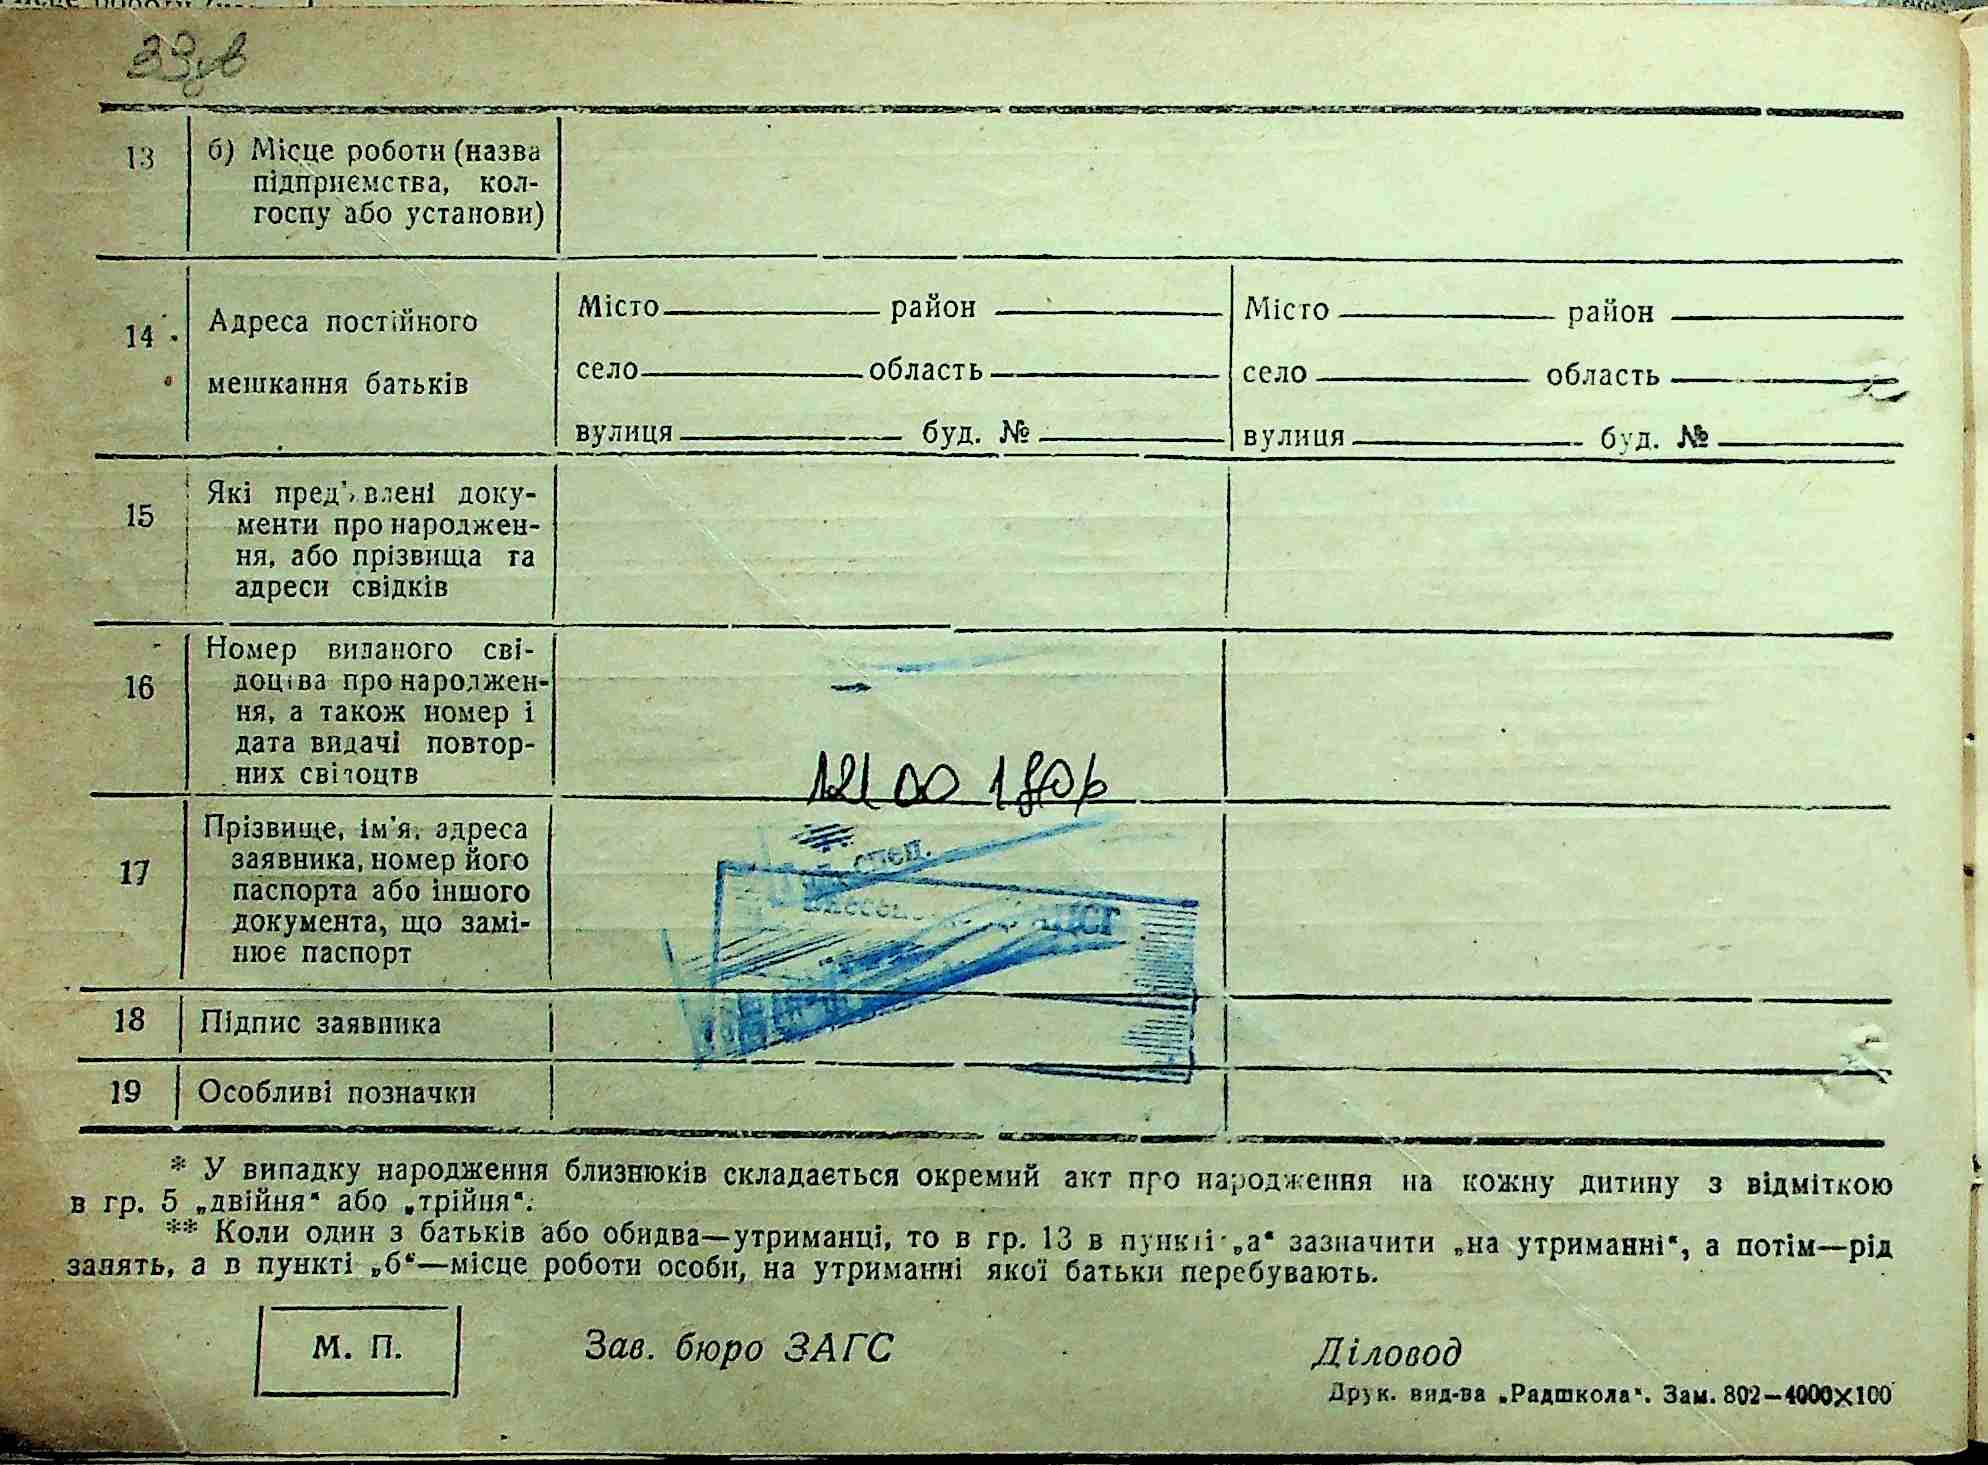 13 б) Місце роботи (назва
підприємства, кол-
госпу або установи)
14 Адреса постійного
мешкання батьків
Місто район
село область
вулиця буд. №
Місто район
село область
вулиця буд. №
15 Які доку-
менти про народжен-
ня, або прізвища та
адреси свідків
16 Номер виданого сві-
доцтва про народжен-
ня, а також номер і
дата видачі повтор-
них свідоцтв
17 Прізвище, ім'я, адреса
заявника, номер його
паспорта або іншого
документа, що замі-
нює паспорт
18 Підпис заявника
19 Особливі позначки
* У випадку народження близнюків складається окремий акт про народження на кожну дитину з відміткою
в гр. 5 „двійня“ або „трійня“.
** Коли один з батьків або обидва—утриманці, то в гр. 13 в пункті „а“ зазначити „на утриманні“, а потім—рід
занять, а в пункті „б“—місце роботи особи, на утриманні якої батьки перебувають.
М. П.
Зав. бюро ЗАГС
Діловод
Друк. вид-ва „Радшкола“. Зам. 802—4000×100